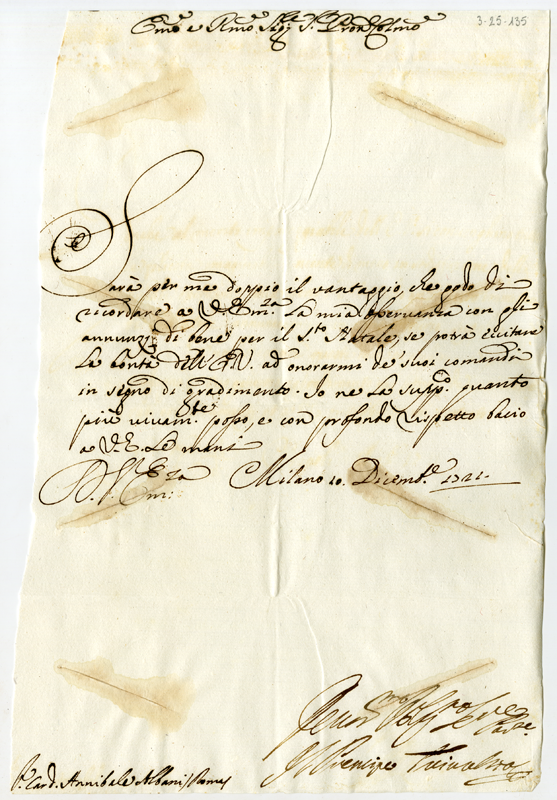 3-25-135
Emo e Rmo Sigr Sr Pron Colmo
Sarà per me doppio il vantaggio, che godo di
ricordare a V. Em.za La mia osservanza con gli
annunzj di bene per il S.to Natale, se potrà eccitare
La bontà dell' E.V. ad onorarmi de' suoi comandi
in segno di gradimento. Io ne La supp.co quanto
più vivam.te posso, e con profondo rispetto bacio
a V.E. Le mani
D. V. Em.za Milano 10. Dicemb.e 1721.
Il Prencipe Trivultio
Sr. Card. Annibale Albani / Roma